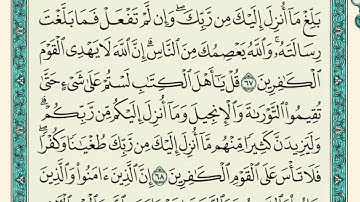 بَلِّغْ مَآ أُنزِلَ إِلَيْكَ مِن رَّبِّكَ ۖ وَإِن لَّمْ تَفْعَلْ فَمَا بَلَّغْتَ
رِسَالَتَهُۥ ۚ وَٱللَّهُ يَعْصِمُكَ مِنَ ٱلنَّاسِ ۗ إِنَّ ٱللَّهَ لَا يَهْدِى ٱلْقَوْمَ
ٱلْكَٰفِرِينَ ٦٧ قُلْ يَٰٓأَهْلَ ٱلْكِتَٰبِ لَسْتُمْ عَلَىٰ شَىْءٍ حَتَّىٰ
تُقِيمُوا۟ ٱلتَّوْرَىٰةَ وَٱلْإِنجِيلَ وَمَآ أُنزِلَ إِلَيْكُم مِّن رَّبِّكُمْ ۗ
وَلَيَزِيدَنَّ كَثِيرًا مِّنْهُم مَّآ أُنزِلَ إِلَيْكَ مِن رَّبِّكَ طُغْيَٰنًا وَكُفْرًا ۖ
فَلَا تَأْسَ عَلَى ٱلْقَوْمِ ٱلْكَٰفِرِينَ ٦٨ إِنَّ ٱلَّذِينَ ءَامَنُوا۟ وَٱلَّذِينَ